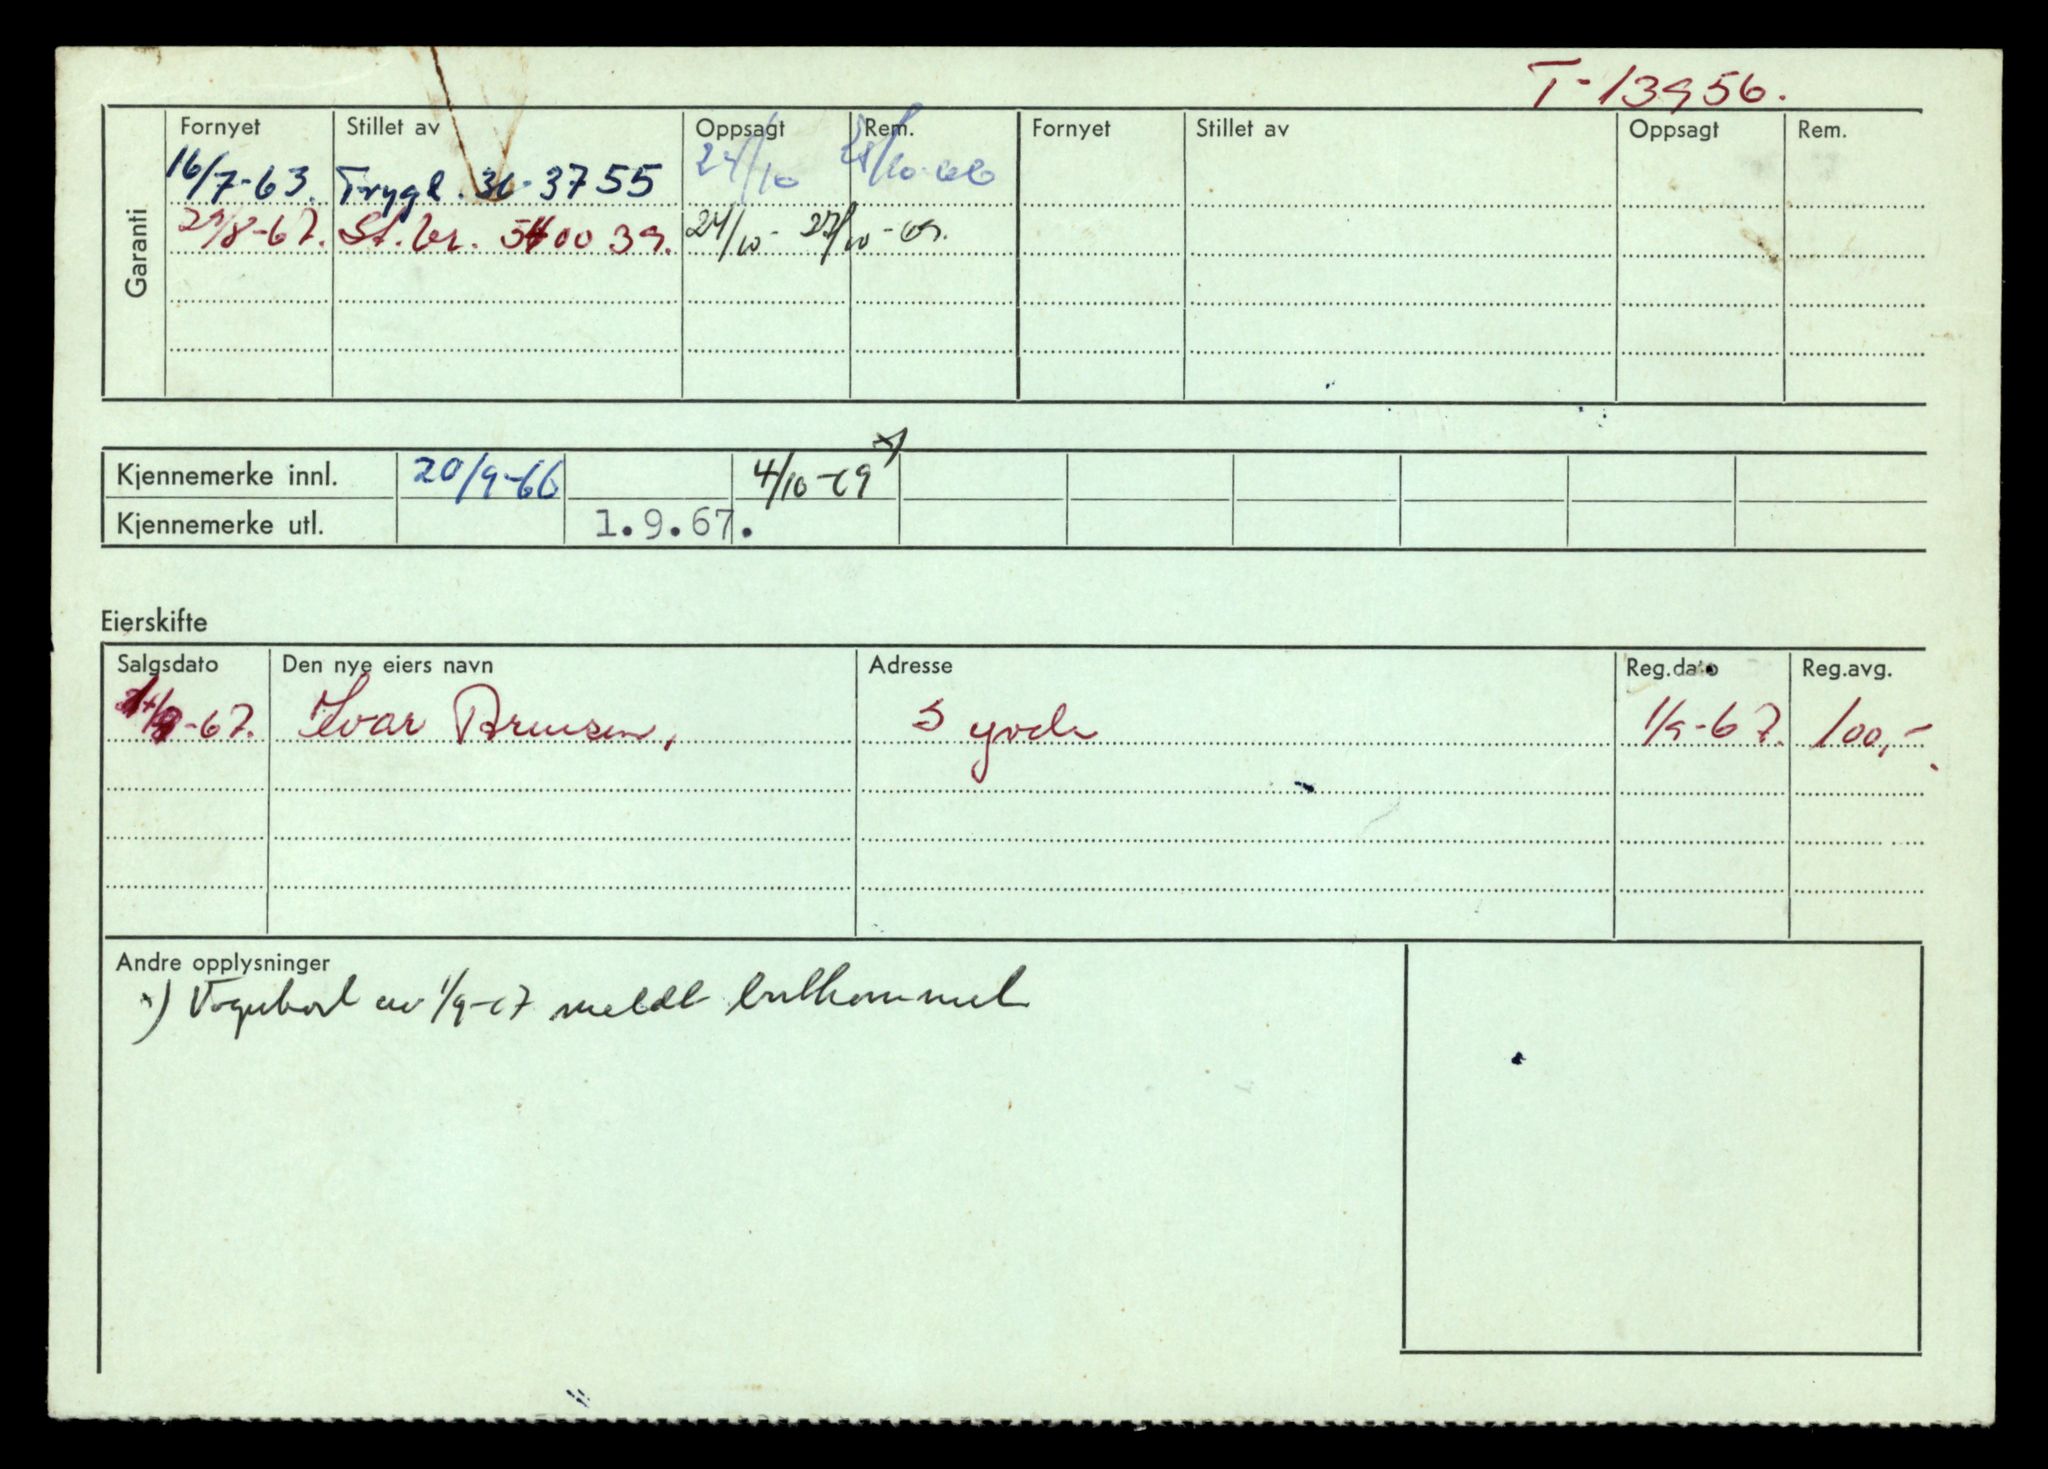 T-13956.
Garanti
Fornyet Stillet av Oppsagt Rem. Fornyet Stillet av Oppsagt Rem.
16/7-63. Trygd. 36-3755 24/10 /10-66
29/8-67. St.br. 540039. 24/10- 27/10-69.
Kjennemerke innl. 20/9-66 4/10-69 x)
Kjennemerke utl. 1.9.67.
Eierskifte
Salgsdato Den nye eiers navn Adresse Reg.dato Reg.avg.
-67. Ivar Syvde 1/9-67. 100,-
Andre opplysninger
x) Vognkort av 1/9-67 meldt